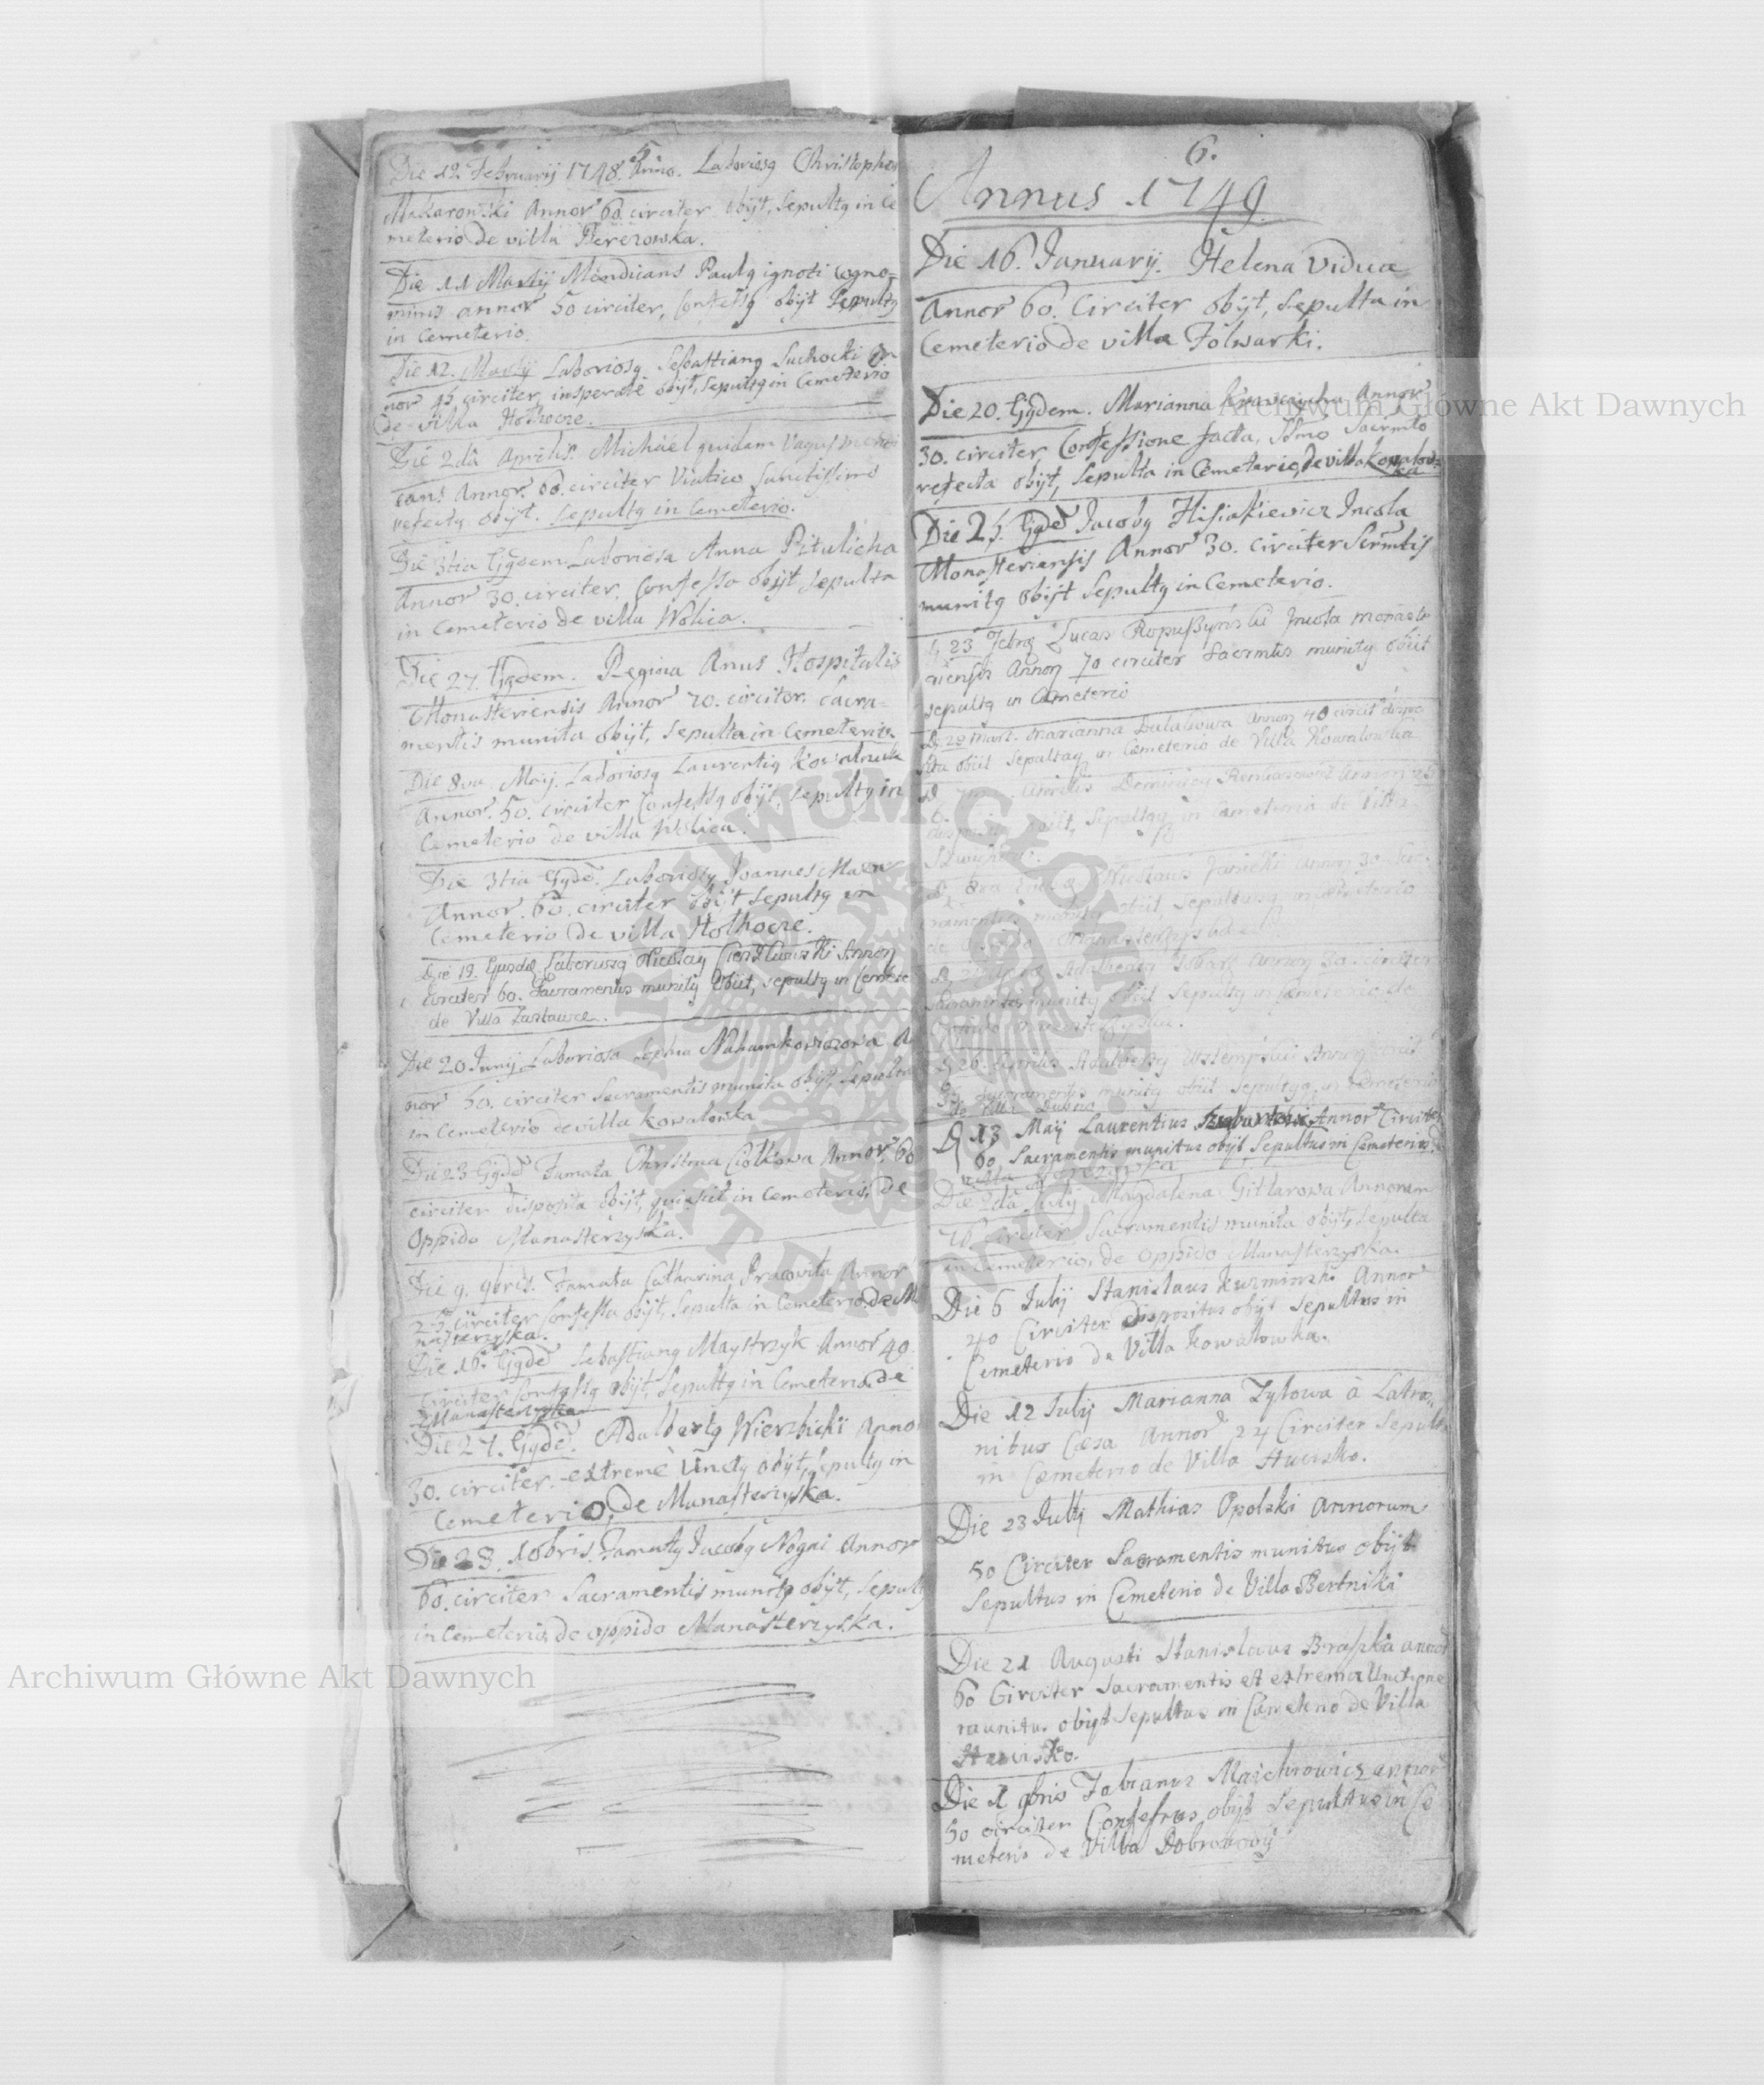 5
Die 12 Februarij 1748. Anno. Laboriosq Christophor
Makarowski Annor 60. circiter obijt, Sepultq in Ce
meterio de villa Berezowka.
Die 11 Martij Mendicans Paulq ignoti cogno-
minis annor 50 circiter, Confessq obijt Sepultq
in Cemeterio.
Die 12. Martij Laboriosq Sebastianq Suchocki An
nor 45 circiter, insperate obijt, Sepultq in Cemeterio
de Villa Hothocze.
Die 2da Aprilis. Michael quidam Vagus mendi
cans Annor. 60. circiter Viatico Sanctissimo
refectq obijt. Sepultq in Cemeterio.
Die 3tia Ejqdem Laboriosa Anna Pitulicha
Annor 30. circiter. Confessa obijt Sepulta
in Cemeterio de villa Wolica.
Die 27. Ejqdem. Regina Anus Hospitalis
Monasteriensis Annor 70. circiter. Sacra-
mentis munita obijt, Sepulta in Cemeterio
Die 8va Maij. Laboriosq Laurentiq
Annor. 50. circiter Confessq obijt, Sepultq in
Cemeterio de villa Wolica.
Die 3tia Ejqde. Laboriosq Joannes
Annor. 60. circiter obijt Sepultq in
Cemeterio de villa Hothocze.
Die 19. Laboriosq Nicolaq Annoq
circiter 60. Sacramentis munitq obiit, sepultq in Cemete
de Villa Zastawce.
Die 20 Junij Laboriosa Sophia An
nor 50. circiter Sacramentis munita obijt, Sepulta
in Cemeterio de villa Kowalowka
Die 23 Ejqde Famata Christina Ciolkowa Annor. 60
circiter disposita obijt, quiescit in Cemeterio, de
Oppido Manasterzyska.
Die 9. 9bris. Famata Catharina Pracovita Annor
25. circiter Confessa obijt, Sepulta in Cemeterio de M
nasterzyska.
Die 16. Ejqde Sebastianq Maystrzyk Annor 40.
circiter Confessq obijt, Sepultq in Cemeterio de
Manasterzyska
Die 27. Ejqde. Adalbertq Wierzbicki Anno
30. circiter. extreme Unctq obijt, Sepultq in
Cemeterio, de Manasterzyska.
Die 23. 10bris. Famatq Jacobq Nogai Annor
60. circiter Sacramentis munitq obijt, Sepultq
in Cemeterio, de oppido Manasterzyska.
6.
Annus 1749.
Die 16. Januarij. Helena Vidua
Annor 60. Circiter obijt, Sepulta in
Cemeterio de villa Folwarki.
Die 20. Ejqdem. Marianna Annor
30. circiter Confessione facta, SSmo Sacrmto
refecta obijt, Sepulta in Cemeterio, de villa Kowalow
ka
Die 25. Ejqde Jacobq Hisiakiewicz Incola
Monasteriensis Annor 30. circiter Scrmtis
munitq obijt Sepultq in Cemeterio.
D 23 Lucas Incola monaste
riensis Annoq 70 circiter Sacrmtis munitq obiit
sepultq in Cemeterio
D 20 Mart. Marianna Annoq 40 circit dispo
sita obiit Sepultaq in Cemeterio de Villa Kowalowka
D Aprilis Dominicq Annoq
obiit, Sepultaq in Cemeterio de Villa
D 8va Nicolaus Janicki annoq 30 Sac
ramentis munitq obiit, Sepultusq in
de
D Adalbertq Annoq 30 circiter
Sacramtis munitq obiit Sepultq in Cemeterio de
D 26. Aprilis Adalbertq Annoq circit
Sacramentis munitq obiit Sepultqq in Cemeterio
de Villa Dubno
D 13 Maij Laurentius Annor Circiter
60 Sacramentis munitus obijt Sepultus in Cemeterio de
villa
Die 2da Julij Magdalena Gittarowa Annorum
70 Circiter Sacramentis munita obijt, Sepulta
in Cemeterio, de oppido Manasterzyska.
Die 6 Julij Stanislaus Kuzminski Annor
40 Circiter dispositus obijt Sepultus in
Cemeterio de Villa Kowalowka.
Die 12 Julij Marianna Zytowa à Latro
nibus Cæsa Annor 24 Circiter Sepulta
in Cæmeterio de Villa Hucisko.
Die 23 Julij Mathias Opolski Annorum
50 Circiter Sacramentis munitus obijt
Sepultus in Cemeterio de Villa Bertniki
Die 21 Augusti Stanislaus Braszka annor
60 Circiter Sacramentis et extrema Unctione
munitus obijt Sepultus in Cæmeterio de Villa
Hucisko.
Die 1 9bris Fabianus Maichrowicz annor
50 circiter Confessus obijt Sepultus in Ce
meterio de Villa Dobrowody
Archiwum Główne Akt Dawnych
Archiwum Główne Akt Dawnych
ARCHIWUM GŁÓWNE AKT DAWNYCH